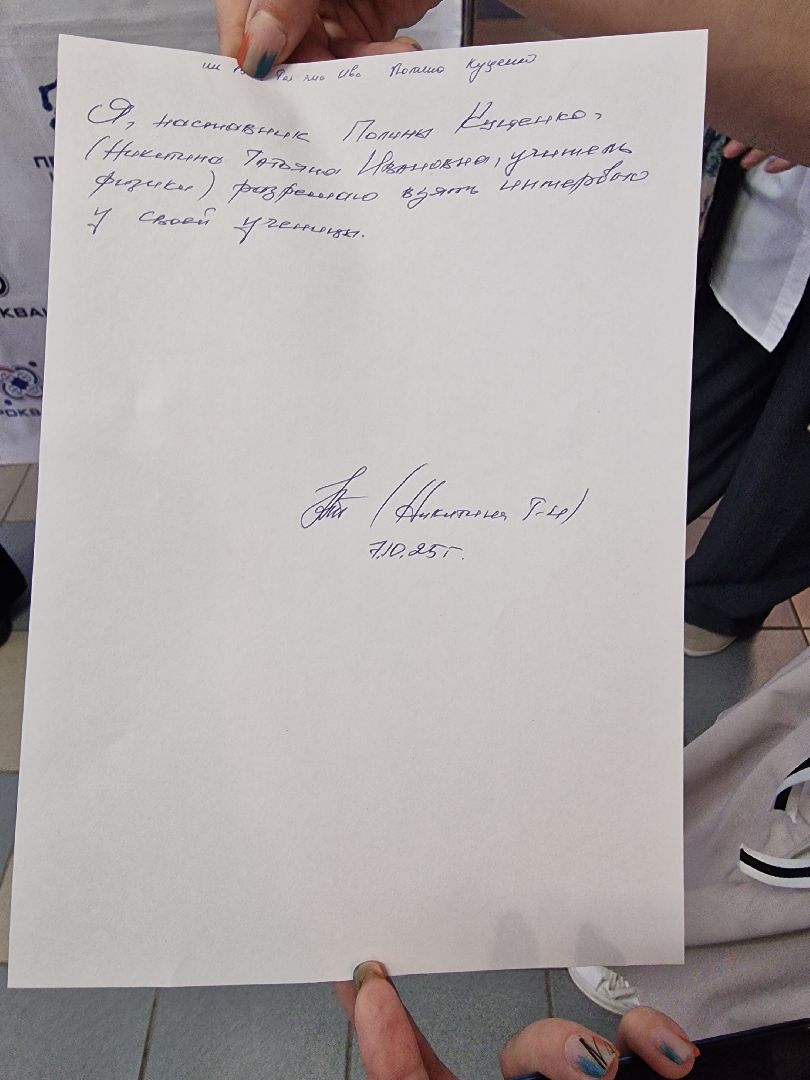 Полина Куценко
Я, наставник Полины Куценко,
(Никитина Татьяна Ивановна, учитель
физики) разрешаю взять интервью
у своей ученицы.
(Никитина Т-И)
7.10.25г.